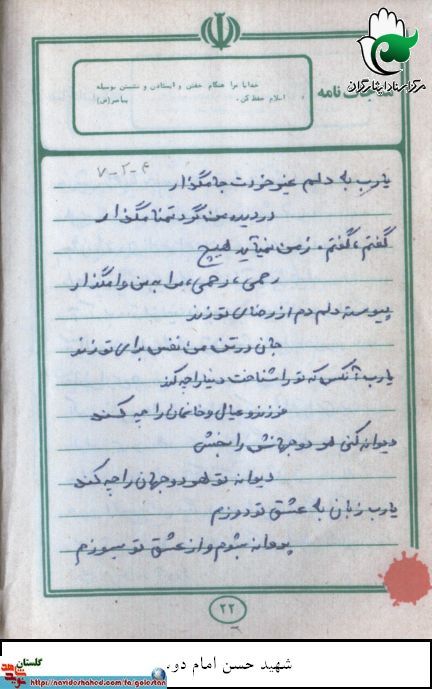 مرکز اسناد ایثارگران
مناجات نامه
خدایا مرا هنگام خفتن و ایستادن و نشستن بوسیله
اسلام حفظ کن.
پیامبر(ص)
۷-۲-۴
یارب به دلم غیر خودت جا مگذار
در دیده من گرد تمنا مگذار
گفتم، گفتم. ز من نمیآید هیچ
رحمی، رحمی، مرا به من وامگذار
پیوسته دلم دم از رضای تو زند
جان در تن من نفس برای تو زند
یارب آنکس که تو را شناخت دنیا را چه کند
فرزند و عیال و خانمان را چه کند
دیوانه کنی هر دو جهانش را بخشی
دیوانه تو هر دو جهان را چه کند
یارب زبان به عشق تو دوزم
پروانه بشوم و از عشق تو بسوزم
۲۲
شهید حسن امام دو.
گلستان
https://navideshahed.com/fa/golestan